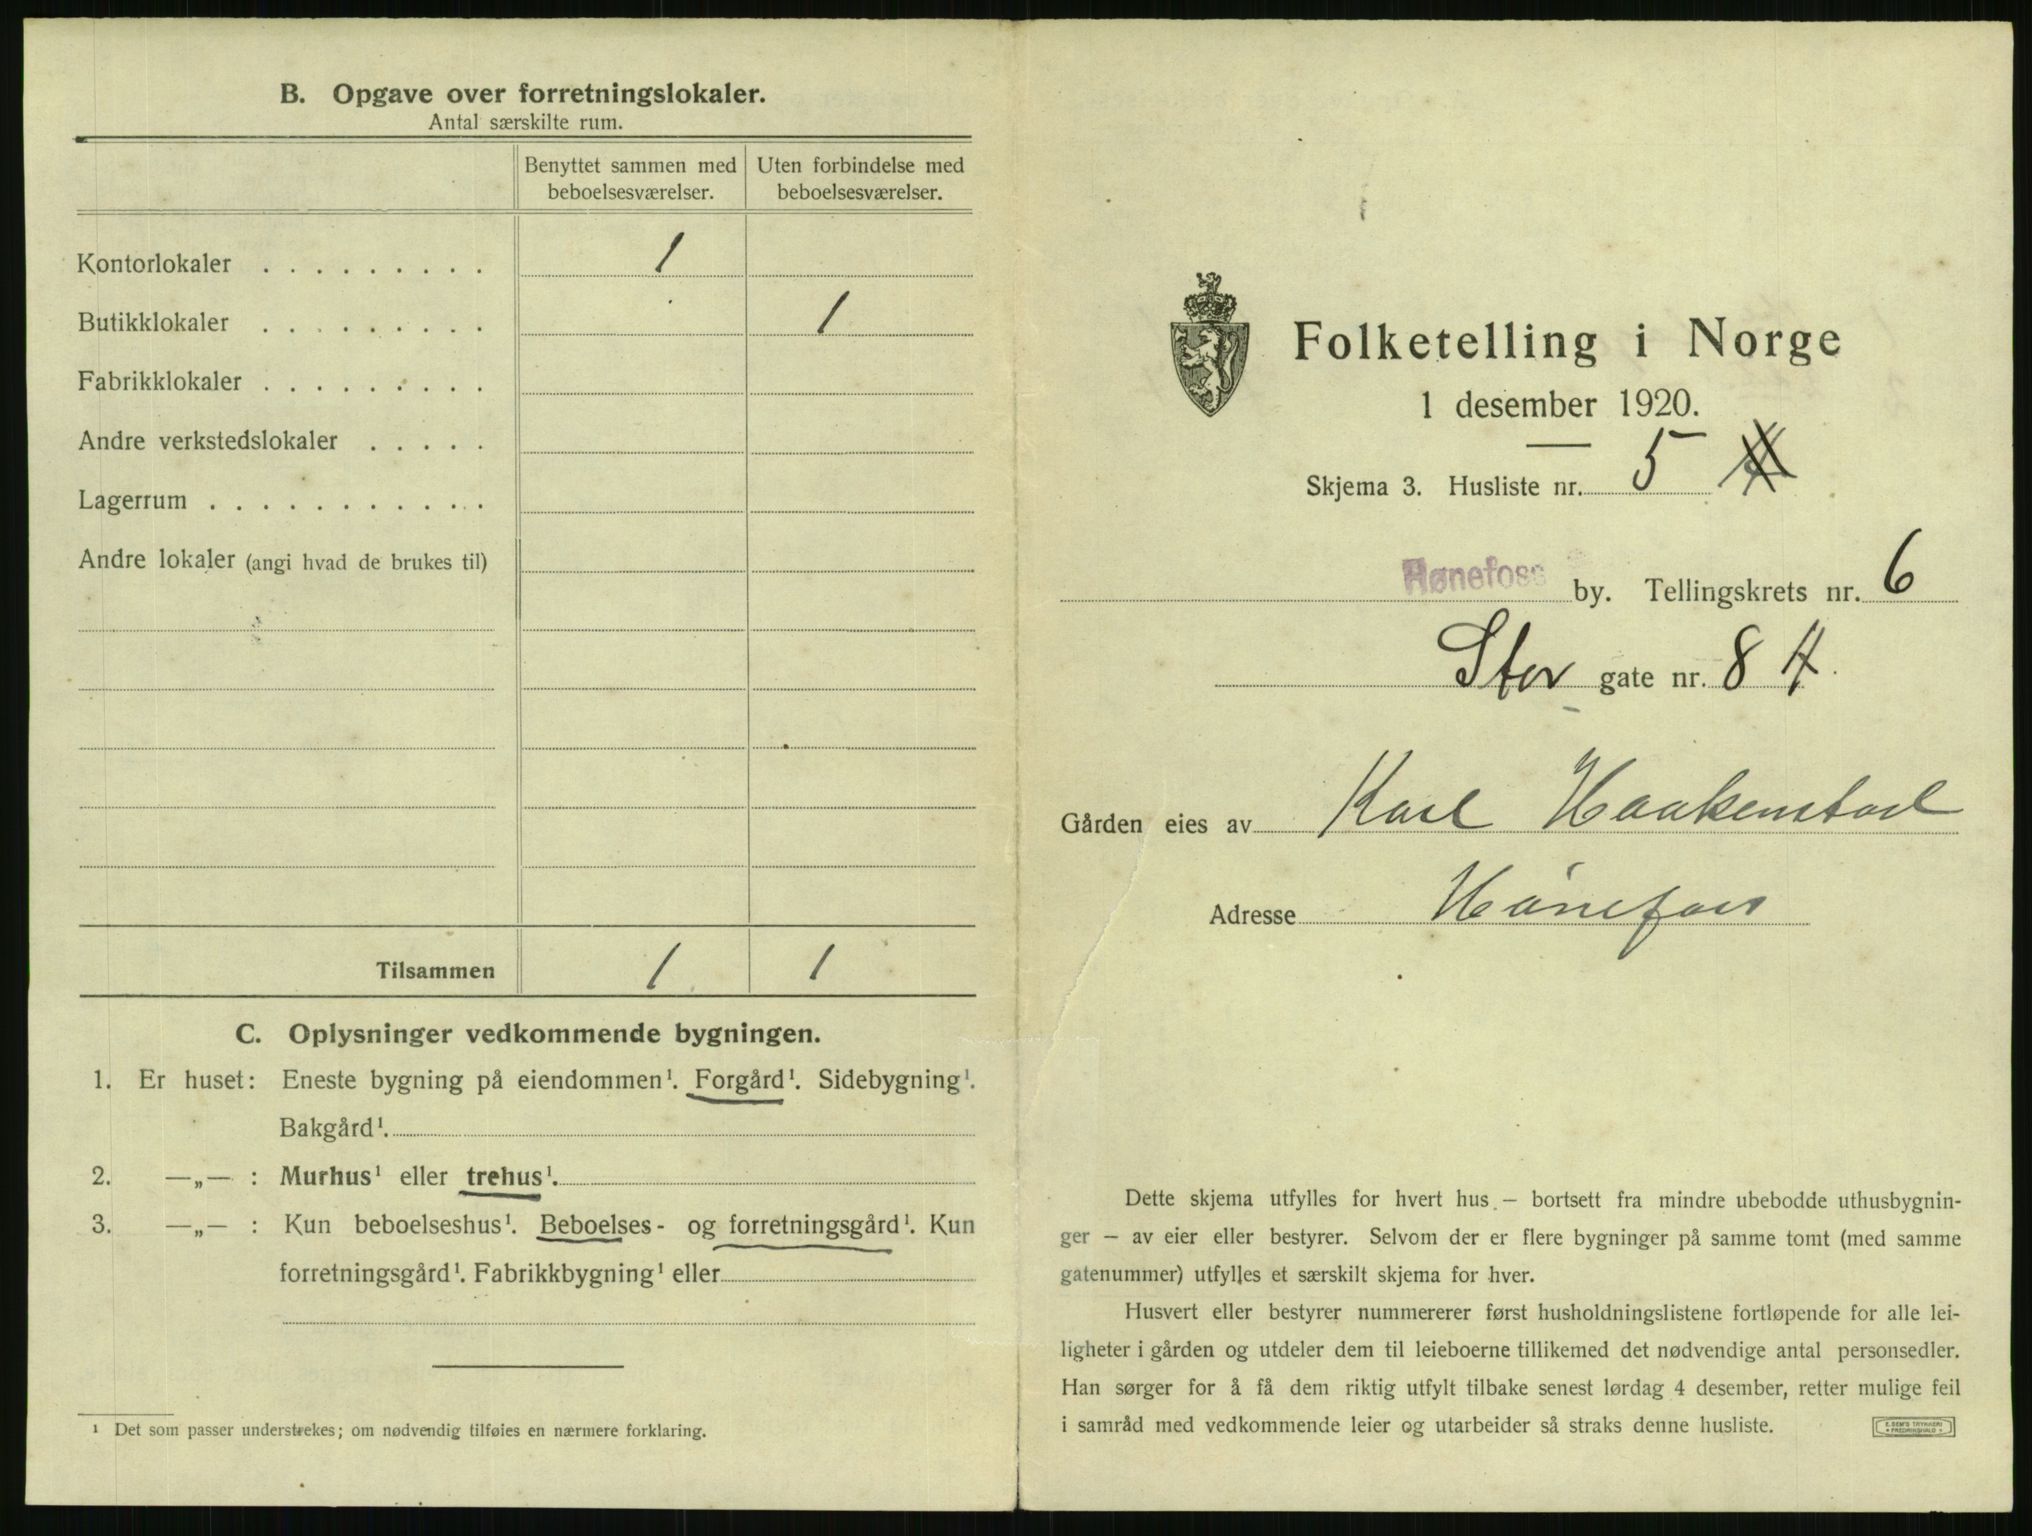 B. Opgave over forretningslokaler.
Antal særskilte rum.
Benyttet sammen med beboelsesværelser.
Uten forbindelse med beboelsesværelser.
Kontorlokaler . . . . . . . . . 1
Butikklokaler . . . . . . . . . 1
Fabrikklokaler . . . . . . . . .
Andre verkstedslokaler . . . . .
Lagerrum . . . . . . . . . . .
Andre lokaler (angi hvad de brukes til)
Tilsammen 1 1
C. Oplysninger vedkommende bygningen.
1. Er huset: Eneste bygning på eiendommen¹. Forgård¹. Sidebygning¹.
Bakgård¹.
2. —„— : Murhus¹ eller trehus¹.
3. —„— : Kun beboelseshus¹. Beboelses- og forretningsgård¹. Kun
forretningsgård¹. Fabrikkbygning¹ eller
¹ Det som passer understrekes; om nødvendig tilføies en nærmere forklaring.
Folketelling i Norge
1 desember 1920.
Skjema 3. Husliste nr. 5
Hønefoss by. Tellingskrets nr. 6
Stor gate nr. 8
Gården eies av Karl Haakenstad
Adresse Hönefoss
Dette skjema utfylles for hvert hus — bortsett fra mindre ubebodde uthusbygnin-
ger — av eier eller bestyrer. Selvom der er flere bygninger på samme tomt (med samme
gatenummer) utfylles et særskilt skjema for hver.
Husvert eller bestyrer nummererer først husholdningslistene fortløpende for alle lei-
ligheter i gården og utdeler dem til leieboerne tillikemed det nødvendige antal personsedler.
Han sørger for å få dem riktig utfylt tilbake senest lørdag 4 desember, retter mulige feil
i samråd med vedkommende leier og utarbeider så straks denne husliste.
E. SEM'S TRYKKERI
FREDRIKSHALD